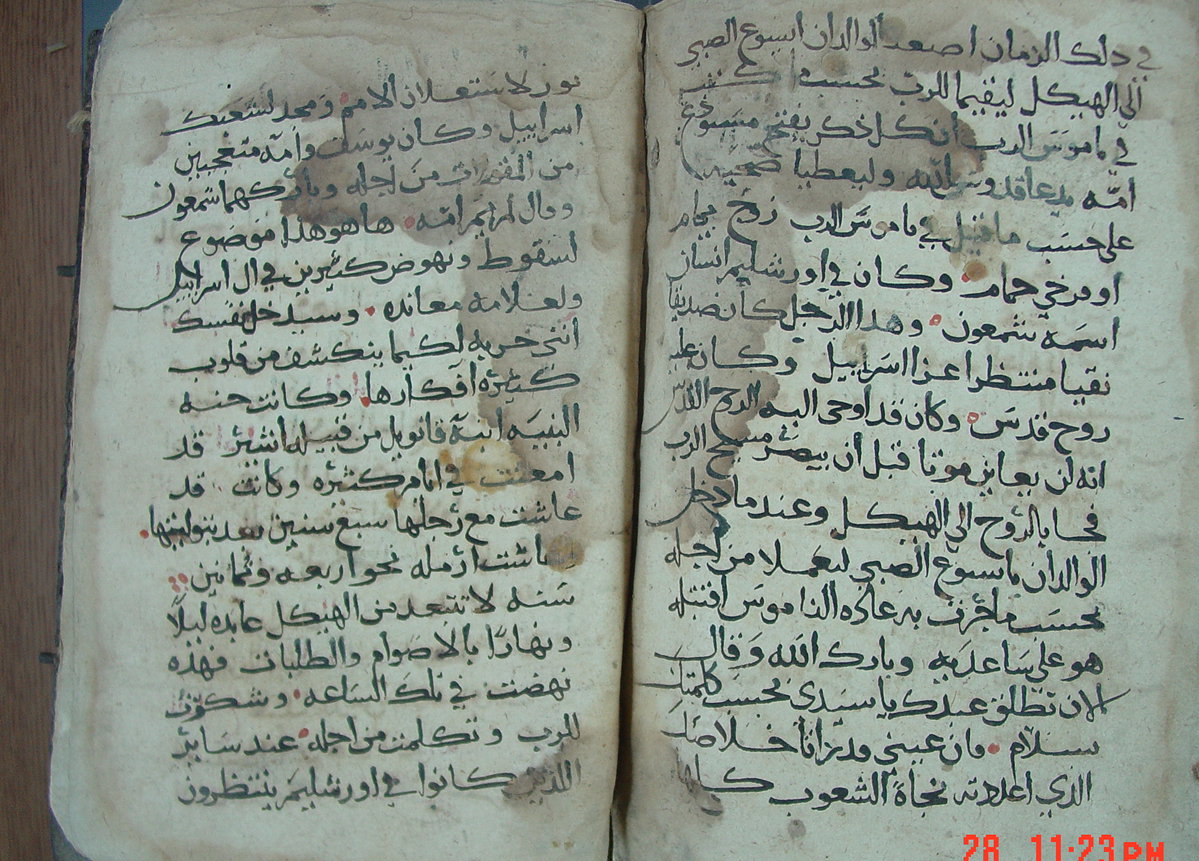 في دلك الزمان اصعد الوالدان ايسوع الصبي
الي الهيكل ليقيما للرب بحسب
في ناموس الرب ان كل ذكر يفتح مستودع
امه يدعا قدوس الله وليعطيا ضحيه
علي حسب ما قيل في ناموس الرب زوج يمام
او فرخي حمام وكان في اورشليم انسان
اسمه شمعون وهدا الرجل كان صديقا
نقيا منتظرا عزا اسراييل وكان عليه
روح قدس وكان قد اوحى اليه الروح القدس
انه لن يعاين موتا قبل ان يبصر مسيح الرب
فجا بالروح الي الهيكل وعند ما دخل
الوالدان بايسوع الصبي ليعملا من اجله
بحسب ما جرت به عادة الناموس اقتبله
هو على ساعديه وبارك الله وقال
الان تطلق عبدك يا سيدي بحسب كلمتك
بسلام فان عيني قد راتا خلاصك
الذي اعددته نجاة الشعوب كلها
نور لاستعلان الامم ومجد لشعبك
اسراييل وكان يوسف وامه متعجبين
من المقولات من اجله وباركهما شمعون
وقال لمريم امه هاهو هدا موضوع
لسقوط ونهوض كثيرين في ال اسراييل
ولعلامة معانده وسيدخل نفسك
انتي حربه لكيما ينكشف من قلوب
كثيره افكارها وكانت حنه
النبيه ابنة فانويل من قبيله اشير قد
امعنت في ايام كثيره وكانت قد
عاشت مع رجلها سبع سنين بعد بتوليتها
عاشت ارمله نحو اربعه وثمانين
سنه لا تبتعد من الهيكل عابده ليلًا
ونهارًا بالاصوام والطلبات فهذه
نهضت في تلك الساعه وشكرت
للرب وتكلمت من اجله عند ساير
اللذين كانوا في اورشليم ينتظرون
28 11:23 PM